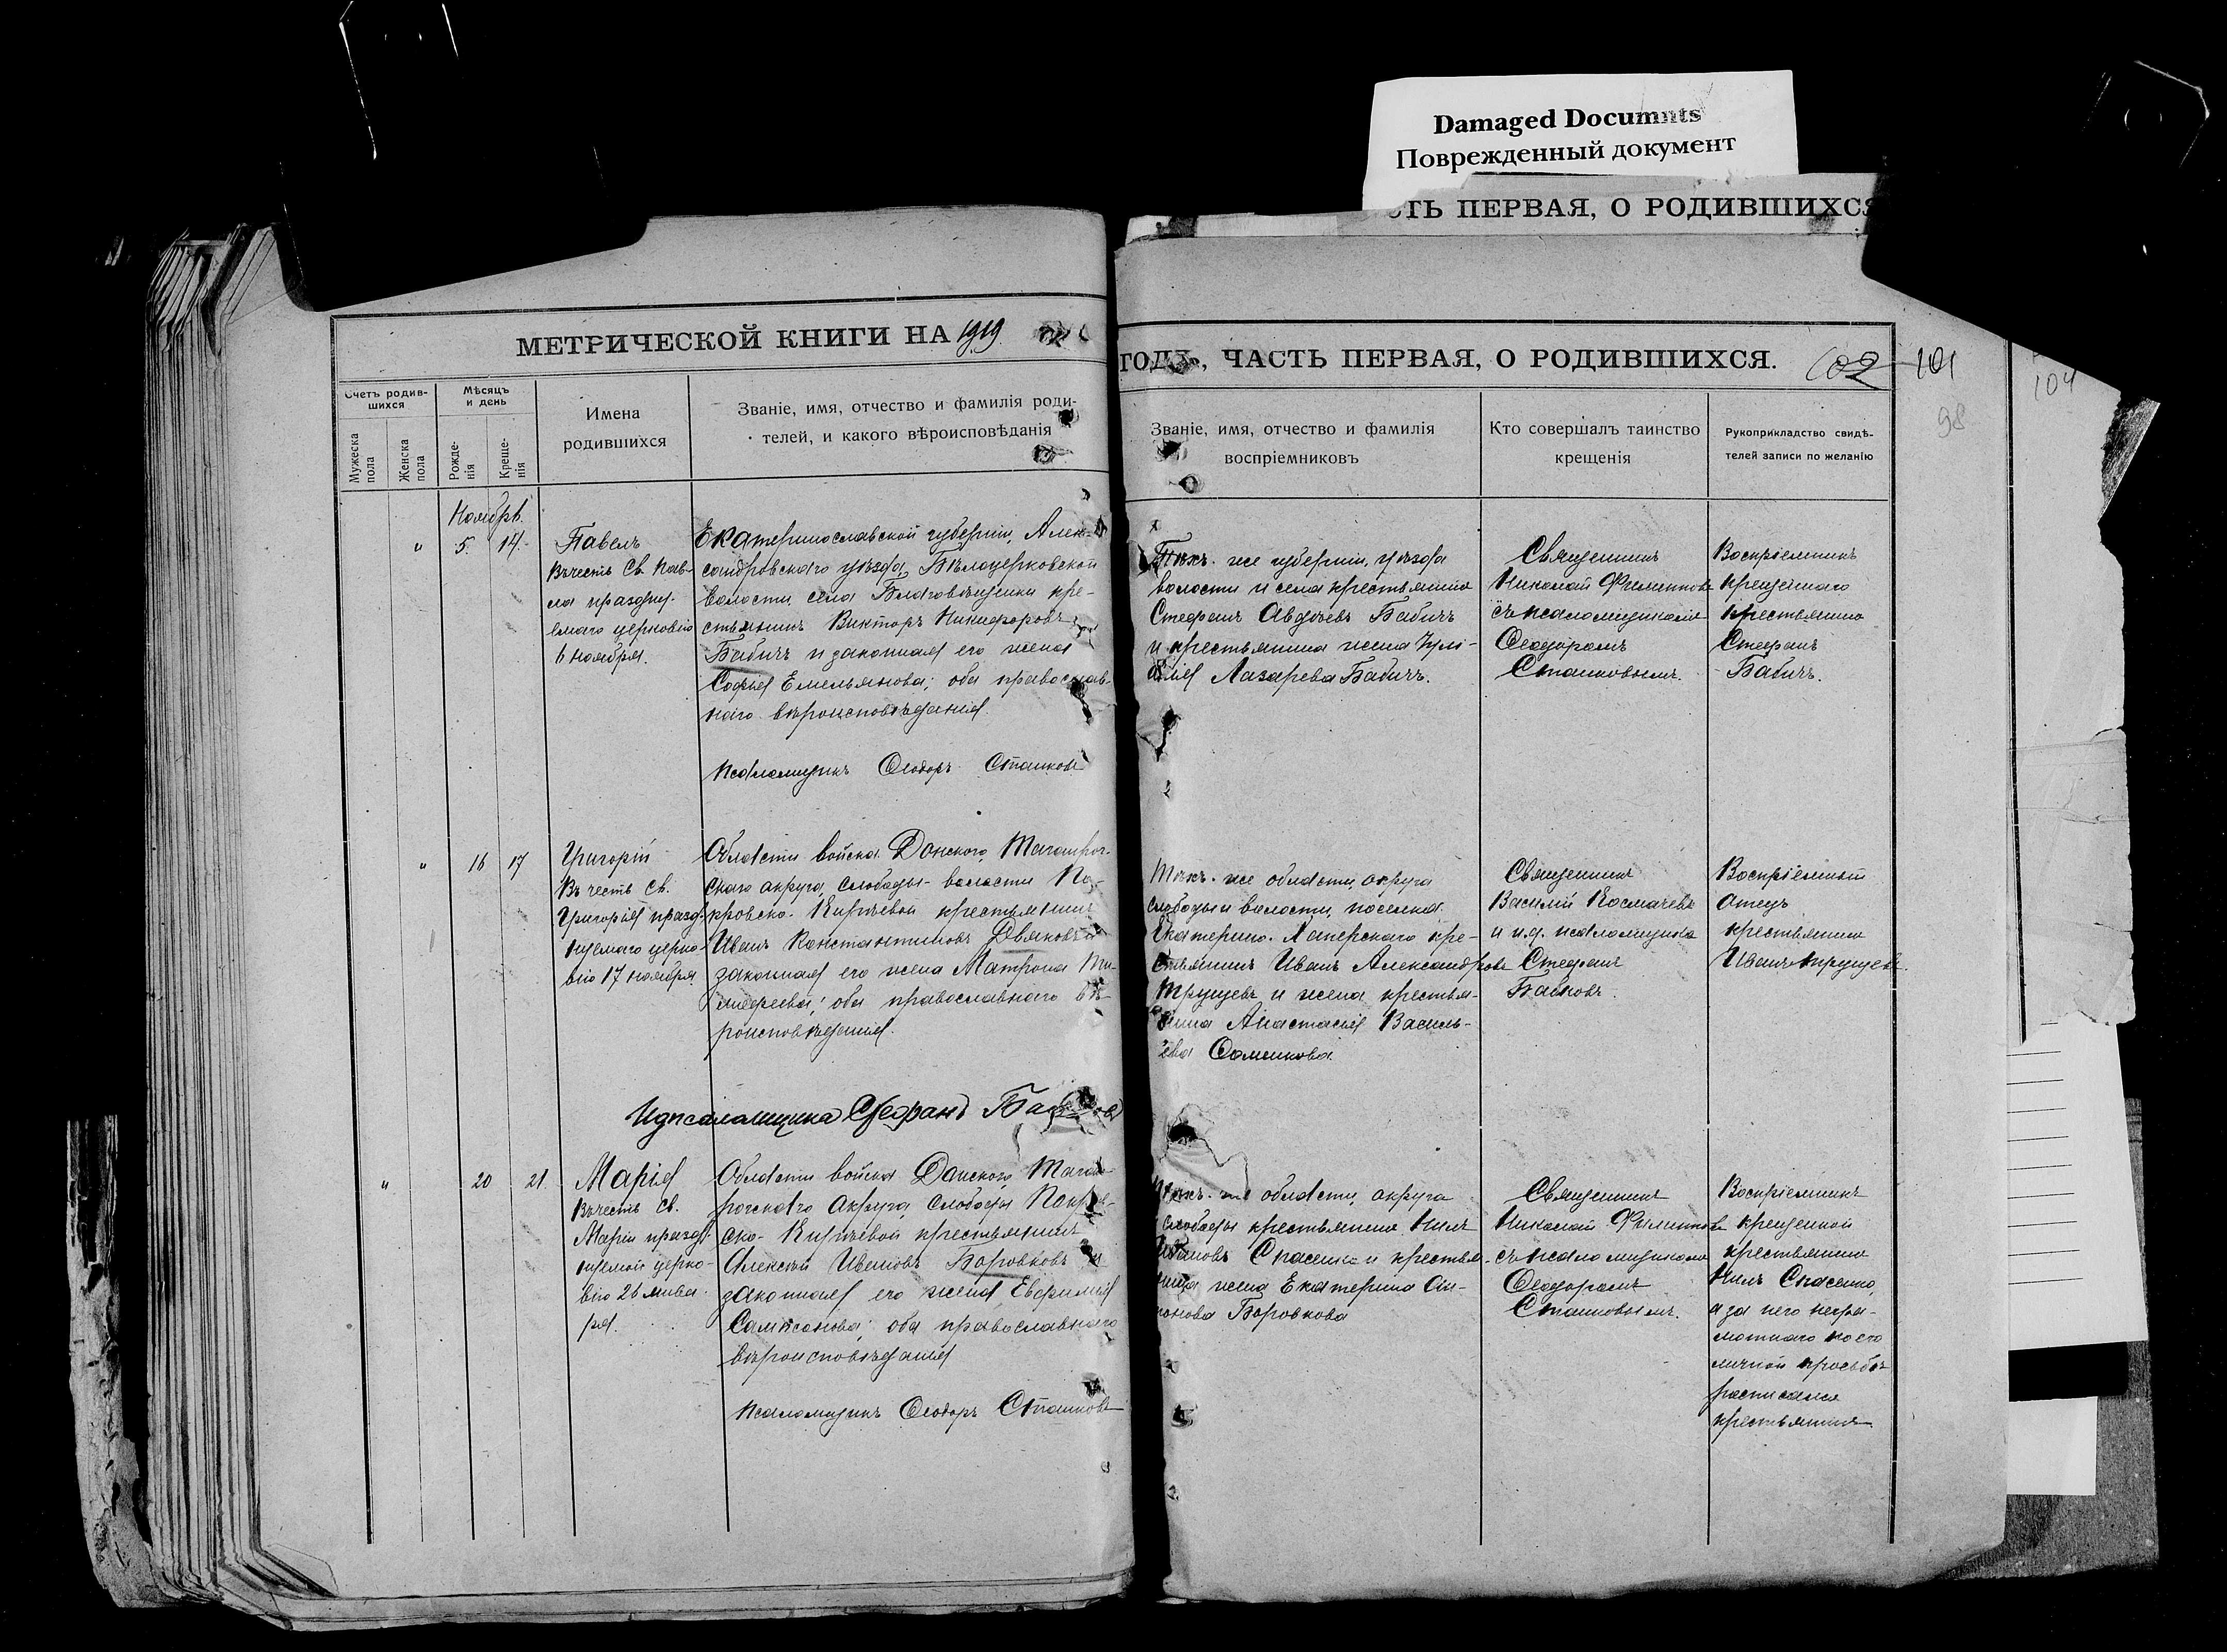 Damaged Documnts
Поврежденный документ
ТЬ ПЕРВАЯ, О РОДИВШИХСЯ
МЕТРИЧЕСКОЙ КНИГИ НА 1919
ГОДЪ, ЧАСТЬ ПЕРВАЯ, О РОДИВШИХСЯ.
102 101
104
98
Счетъ родив-
шихся
Мужеска
пола
Женска
пола
Мѣсяцъ
и день
Рожде-
нія
Креще-
нія
Имена
родившихся
Званіе, имя, отчество и фамилія роди-
телей, и какого вѣроисповѣданія
Званіе, имя, отчество и фамилія
воспріемниковъ
Кто совершалъ таинство
крещенія
Рукоприкладство свидѣ-
телей записи по желанію
Ноябрь.
" 5. 14.
Павелъ
Въ честь Св. Пав-
ла праздну-
емаго церковію
6 ноября.
Екатеринославской губерніи, Алек-
сандровскаго уѣзда, Бѣлоцерковской
волости, села Благовѣщенки кре-
стьянинъ Викторъ Никифоровъ
Бабичъ и законная его жена
Софія Емельянова; оба православ-
наго вѣроисповѣданія.
Псаломщикъ Ѳеодоръ Сташковъ
Тѣхъ-же губерніи, уѣзда
волости и села крестьянинъ
Стефанъ Авдѣевъ Бабичъ
и крестьянина жена
Лазарева Бабичъ.
Священникъ
Николай Филипповъ
съ псаломщикомъ
Ѳеодоромъ
Сташковымъ.
Воспріемникъ
крещеннаго
крестьянинъ
Стефанъ
Бабичъ.
" 16 17
Григорій
Въ честь Св.
Григорія празд-
нуемаго церко-
вію 17 ноября.
Области войска Донского, Таганрог-
скаго округа, слободы-волости По-
кровско-Кирѣевой крестьянинъ
Иванъ Константиновъ Дьяковъ и
законная его жена Матрона Ти-
мофеева; оба православнаго вѣ-
роисповѣданія.
И д псаломщика Стефанъ
Тѣхъ-же области, округа
слободы и волости, поселка
Екатерино-Хаперскаго кре-
стьянинъ Иванъ Александровъ
Трущевъ и жена крестья-
нина Анастасія Василь-
ева Фоменкова.
Священникъ
Василій Космачевъ
и и.д. псаломщика
Стефанъ
Воспріемный
отецъ
крестьянинъ
Иванъ Трущевъ.
" 20 21.
Марія
Въ честь Св.
Маріи празд-
нуемой церко-
вію 26 янва-
ря.
Области войска Донского, Таган-
рогскаго округа, слободы Покров-
ско-Кирѣевой крестьянинъ
Алексѣй Ивановъ Боровковъ и
законная его жена Евфимія
Сампсонова; оба православнаго
вѣроисповѣданія
Псаломщикъ Ѳеодоръ Сташковъ
Тѣхъ-же области, округа
слободы крестьянинъ Нилъ
Ивановъ Спасенко и крестья-
нина жена Екатерина Ан-
тонова Боровкова
Священникъ
Николай Филипповъ
съ псаломщикомъ
Ѳеодоромъ
Сташковымъ.
Воспріемникъ
крещенной
крестьянинъ
Нилъ Спасенко,
а за него негра-
мотнаго по его
личной просьбѣ
росписался
крестьянинъ